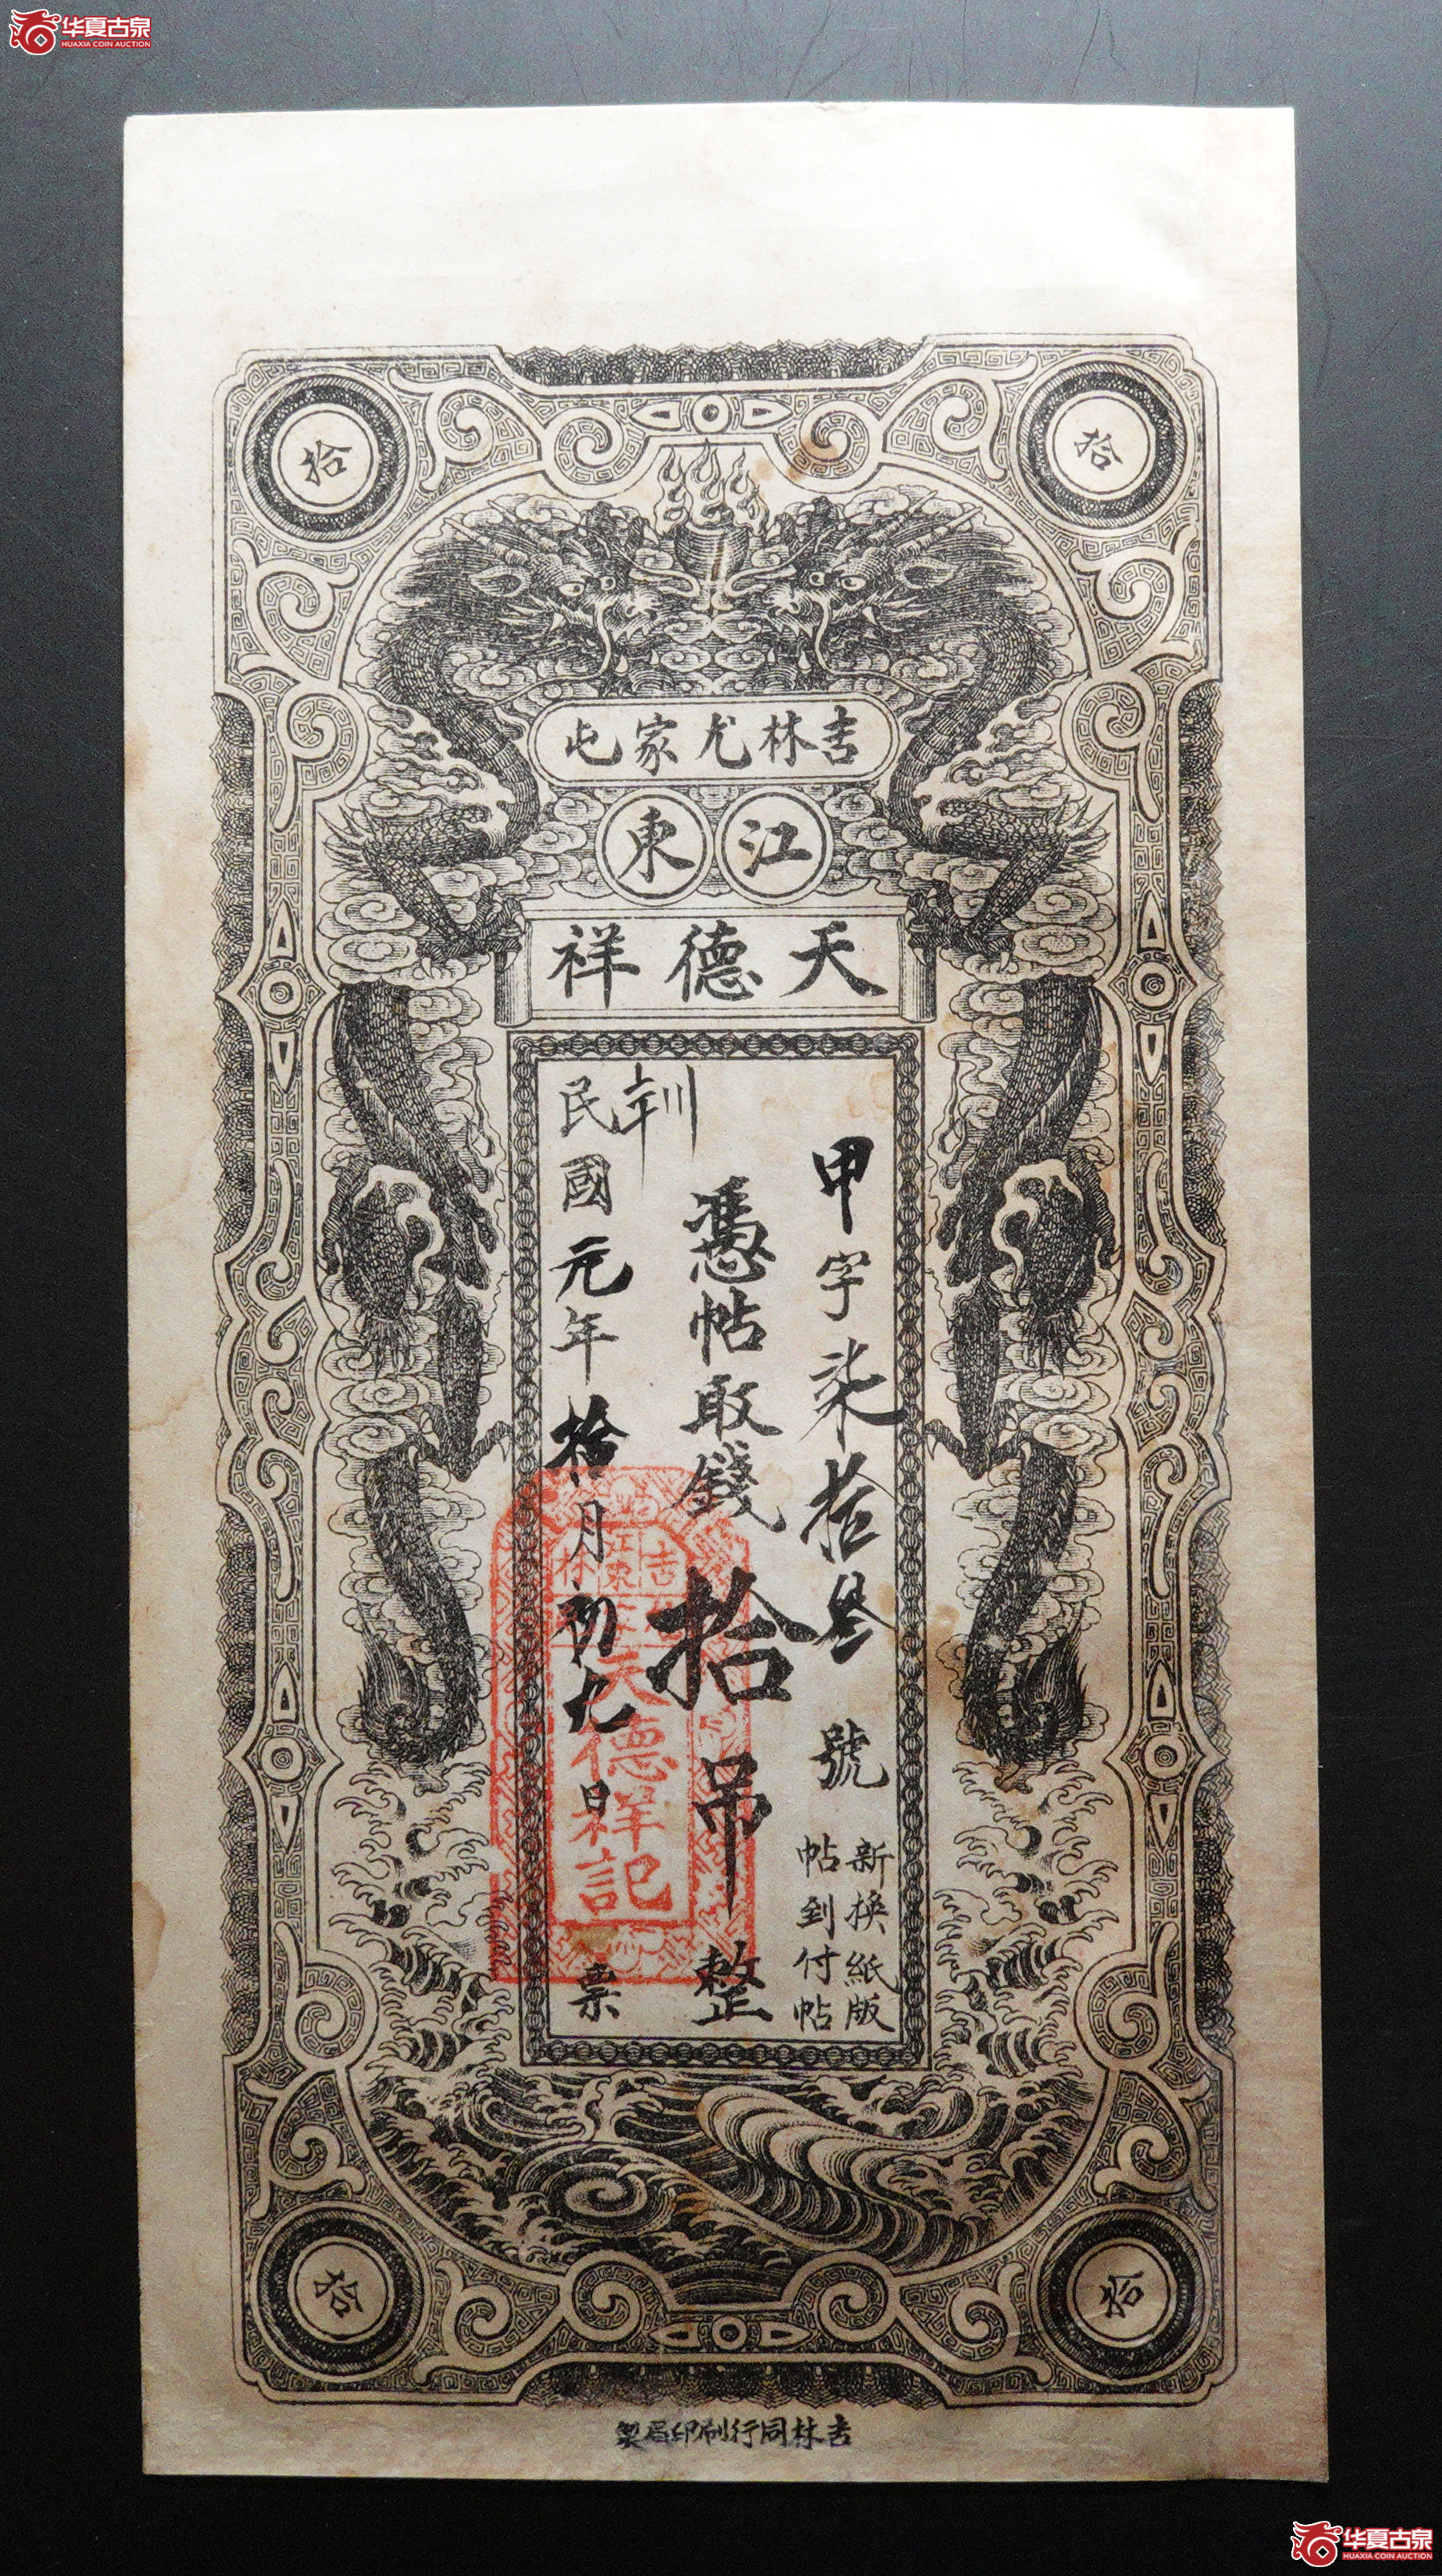 华夏古泉
HUAXIA COIN AUCTION
拾
拾
吉林尤家屯
江東
天德祥
甲字柒拾叄號
新換紙版
帖到付帖
憑帖取錢拾吊整
民國元年拾月初九日票
吉林
江東
天德祥記
拾
拾
吉林同行刷印局製
华夏古泉
HUAXIA COIN AUCTION